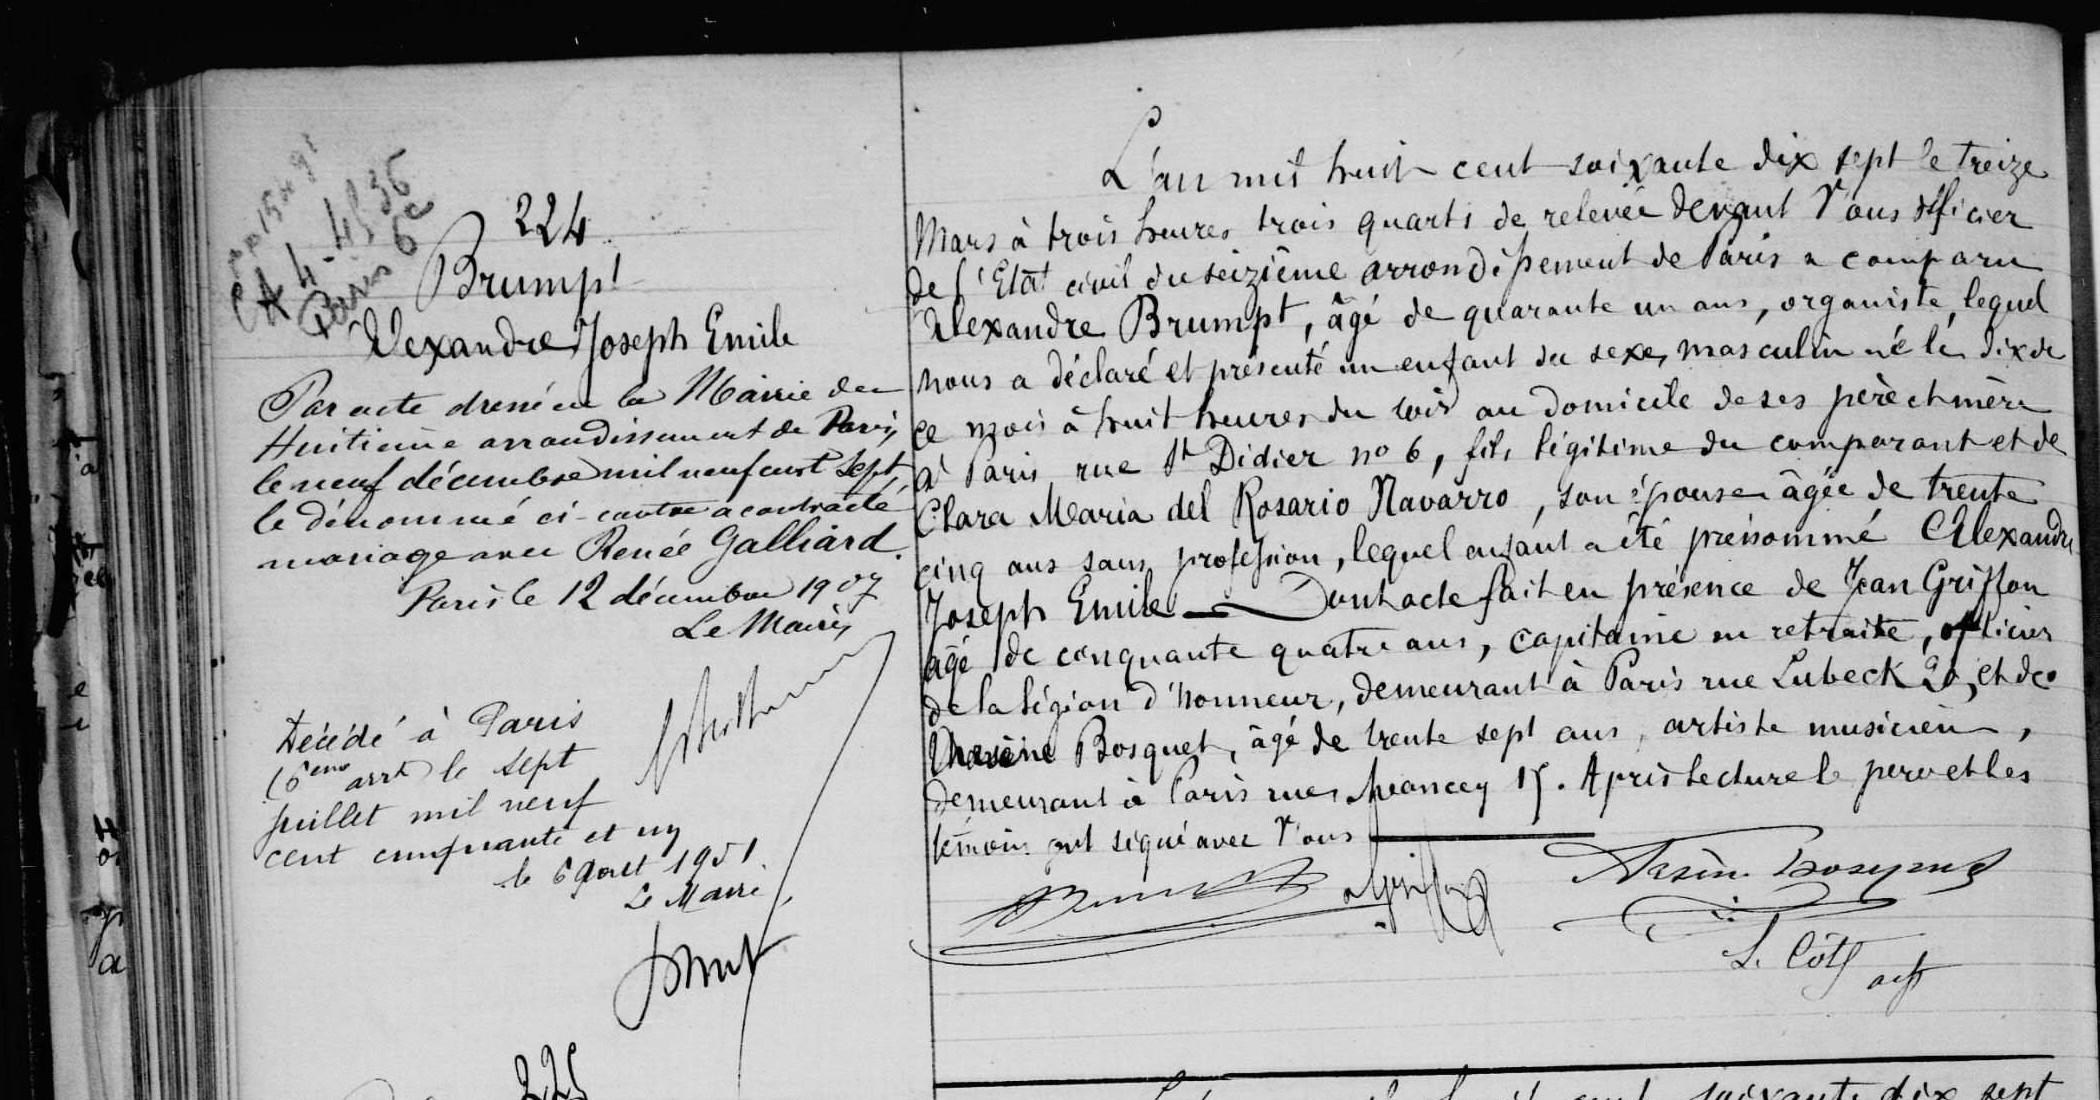 4-4536
Paris 6e
224
Brumpt
Alexandre Joseph Emile
Par acte dressé en la Mairie du
Huitième arrondissement de Paris
le neuf décembre mil neuf cent sept
le dénommé ci-contre a contracté
mariage avec Renée Galliard.
Paris le 12 décembre 1907
Le Maire,
Décédé à Paris
le sept
juillet mil neuf
cent cinquante et un
le 6 Aout 1951.
Le Maire,
L'an mil huit cent soixante dix sept le treize
Mars à trois heures trois quarts de relevée devant Nous officier
de l'Etat civil du seizième arrondissement de Paris a comparu
Alexandre Brumpt, âgé de quarante un ans, organiste, lequel
nous a déclaré et présenté un enfant du sexe masculin né le dix de
ce mois à huit heures du soir au domicile de ses père et mère
à Paris rue St Didier no 6, fils légitime du comparant et de
Clara Maria del Rosario Navarro, son épouse âgée de trente
cinq ans sans profession, lequel enfant a été prénommé Alexandre
Joseph Emile Dont acte fait en présence de Jean Griffon
âgé de cinquante quatre ans, capitaine en retraite, officier
de la légion d'honneur, demeurant à Paris rue Lubeck 20, et de
Bosquet, âgé de trente sept ans, artiste musicien,
demeurant à Paris rue 15. Après lecture le père et les
témoins ont signé avec Nous
Arsène Bosquet
225
soixante dix sept